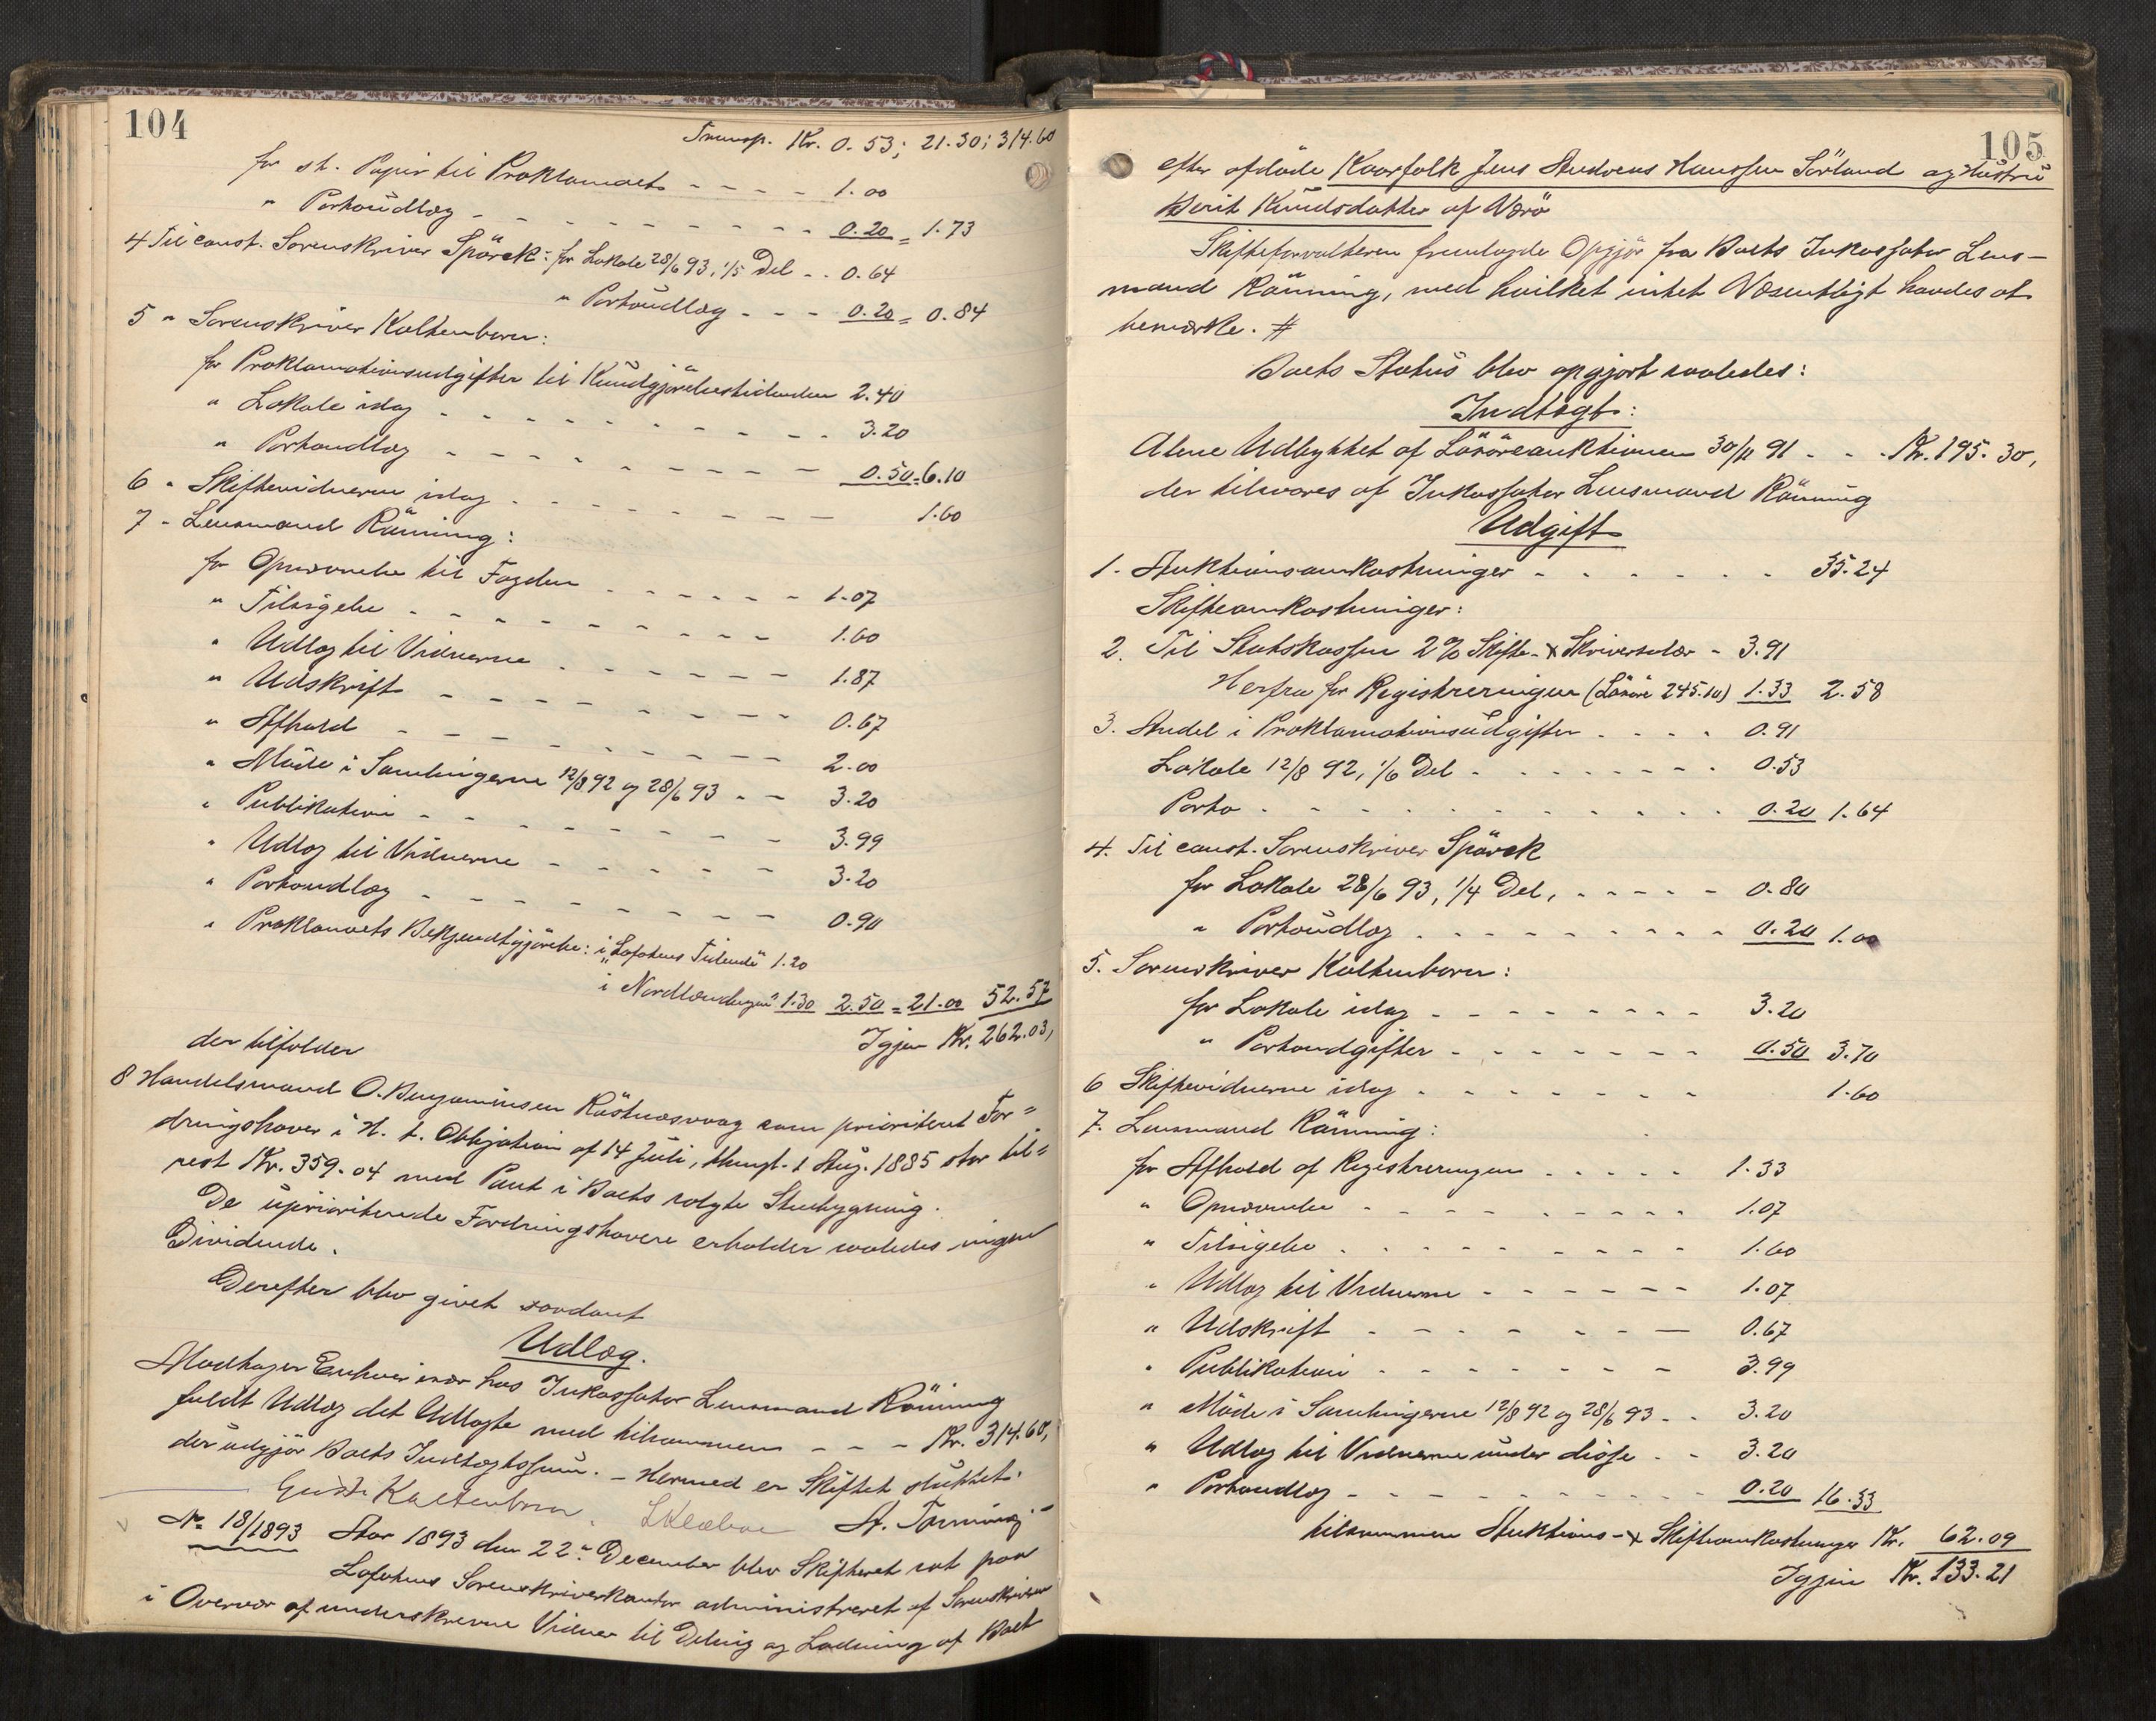 104
Transp. Kr. 0.53; 21.30; 314.60
for st. Papir til Proklamaet - - - - 1.00
" Portoudlæg - - - - - - - - - 0.20 = 1.73
4 Til const. Sorenskriver Spörck: for Lokale 28/6 93, 1/5 Del - - 0.64
" Portoudlæg - - - 0.20 = 0.84
5 " Sorenskriver Kaltenborn:
for Proklamationsudgifter til Kundgjörelsestidenden 2.40
" Lokale idag - - - - - - - - - - 3.20
" Portoudlæg - - - - - - - - - 0.50 = 6.10
6 " Skiftevidnerne idag - - - - - - - - 1.60
7 - Lensmand Rönning:
for Opnævnelse til Fogden - - - - - - 1.07
" Tilsigelse - - - - - - - - - 1.60
" Udlæg til Vidnerne - - - - - - 1.87
" Udskrift - - - - - - - - - 0.67
" Afhold - - - - - - - - - - 2.00
" Möde i Samlingerne 12/8 92 og 28/6 93 - - 3.20
" Publikation - - - - - - - - - 3.99
" Udlæg til Vidnerne - - - - - - 3.20
" Portoudlæg - - - - - - - - 0.90
" Proklamaets Bekjendtgjörelse: i "Lofotens Tidende" 1.20
i Nordlændingen" 1.30 2.50 = 21.00 52.57
Igjen Kr. 262.03,
der tilfalder
8 Handelsmand O. Benjaminsen Röstnæsvaag som prioriteret For=
dringshaver i H. t. Obligation af 14 Juli, thingl. 1 Aug. 1885 stor til=
rest Kr. 359.04 med Pant i Boets solgte Stuebygning.
De uprioriterede Fordringshavere erholder saaledes ingen
Dividende.
Derefter blev givet saadant
Udlæg.
Modtager Enhver især hos Inkassator Lensmand Rönning
fuldt Udlæg det Udlagte med tilsammen - - - Kr. 314.60,
der udgjör Boets Indtægtssum. - Hermed er Skiftet sluttet.
Kaltenborn.
No 18/1893 Aar 1893 den 22de December blev Skifteret sat paa
Lofotens Sorenskriverkontor administreret af Sorenskriveren
i Overvær af underskrevne Vidner til Deling og Lodning af Boet
105
efter afdöde Kaarfolk Jens Andreas Hanssen Sörland og Hustru
Berit Knudsdatter af Værö
Skifteforvalteren fremlagde Opgjör fra Boets Inkassator Lens-
mand Rönning, med hvilket intet Væsentligt havdes at
bemærke. #
Boets Status blev opgjort saaledes:
Indtægt:
Alene Udbyttet af Lösöreauktionen 30/11 91 - - - Kr. 195.30,
der tilsvares af Inkassator Lensmand Rönning
Udgift
1. Auktionsomkostninger - - - - - - 35.24
Skifteomkostninger:
2. Til Statskassen 2% Skifte- & Skriversalær - 3.91
Herfra for Registreringen (Lösöre 245.10) 1.33 2.58
3. Andel i Proklamationsudgifter - - - - 0.91
Lokale 12/8 92, 1/6 Del - - - - - - - 0.53
Porto - - - - - - - - - - - - 0.20 1.64
4. Til const. Sorenskriver Spörck
for Lokale 28/6 93, 1/4 Del, - - - - - 0.80
" Portoudlæg - - - - - - - - - 0.20 1.00
5. Sorenskriver Kaltenborn:
for Lokale idag - - - - - - - - 3.20
" Portoudgifter - - - - - - - 0.50 3.70
6 Skiftevidnerne idag - - - - - - - 1.60
7. Lensmand Rönning:
for Afhold af Registreringen - - - - - 1.33
" Opnævnelse - - - - - - - - - 1.07
" Tilsigelse - - - - - - - - - 1.60
" Udlæg til Vidnerne - - - - - - 1.07
" Udskrift - - - - - - - 0.67
" Publikation - - - - - - - 3.99
" Möde i Samlingerne 12/8 92 og 28/6 93 - - 3.20
" Udlæg til Vidnerne under disse - - 3.20
" Portoudlæg - - - - - - - - - - - 0.20 16.33
tilsammen Auktions- & Skifteomkostninger Kr. 62.09
Igjen Kr. 133.21